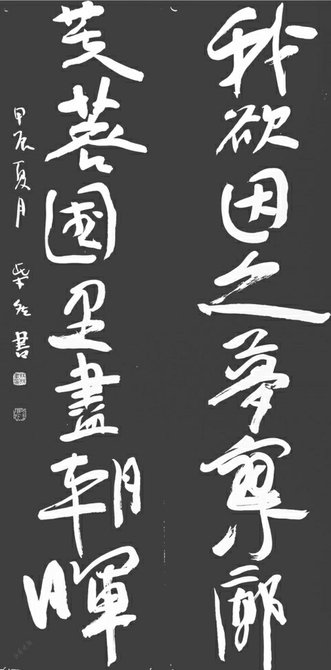 我欲因之夢寥廓
芙蓉國里盡朝暉
甲辰夏月 柴書